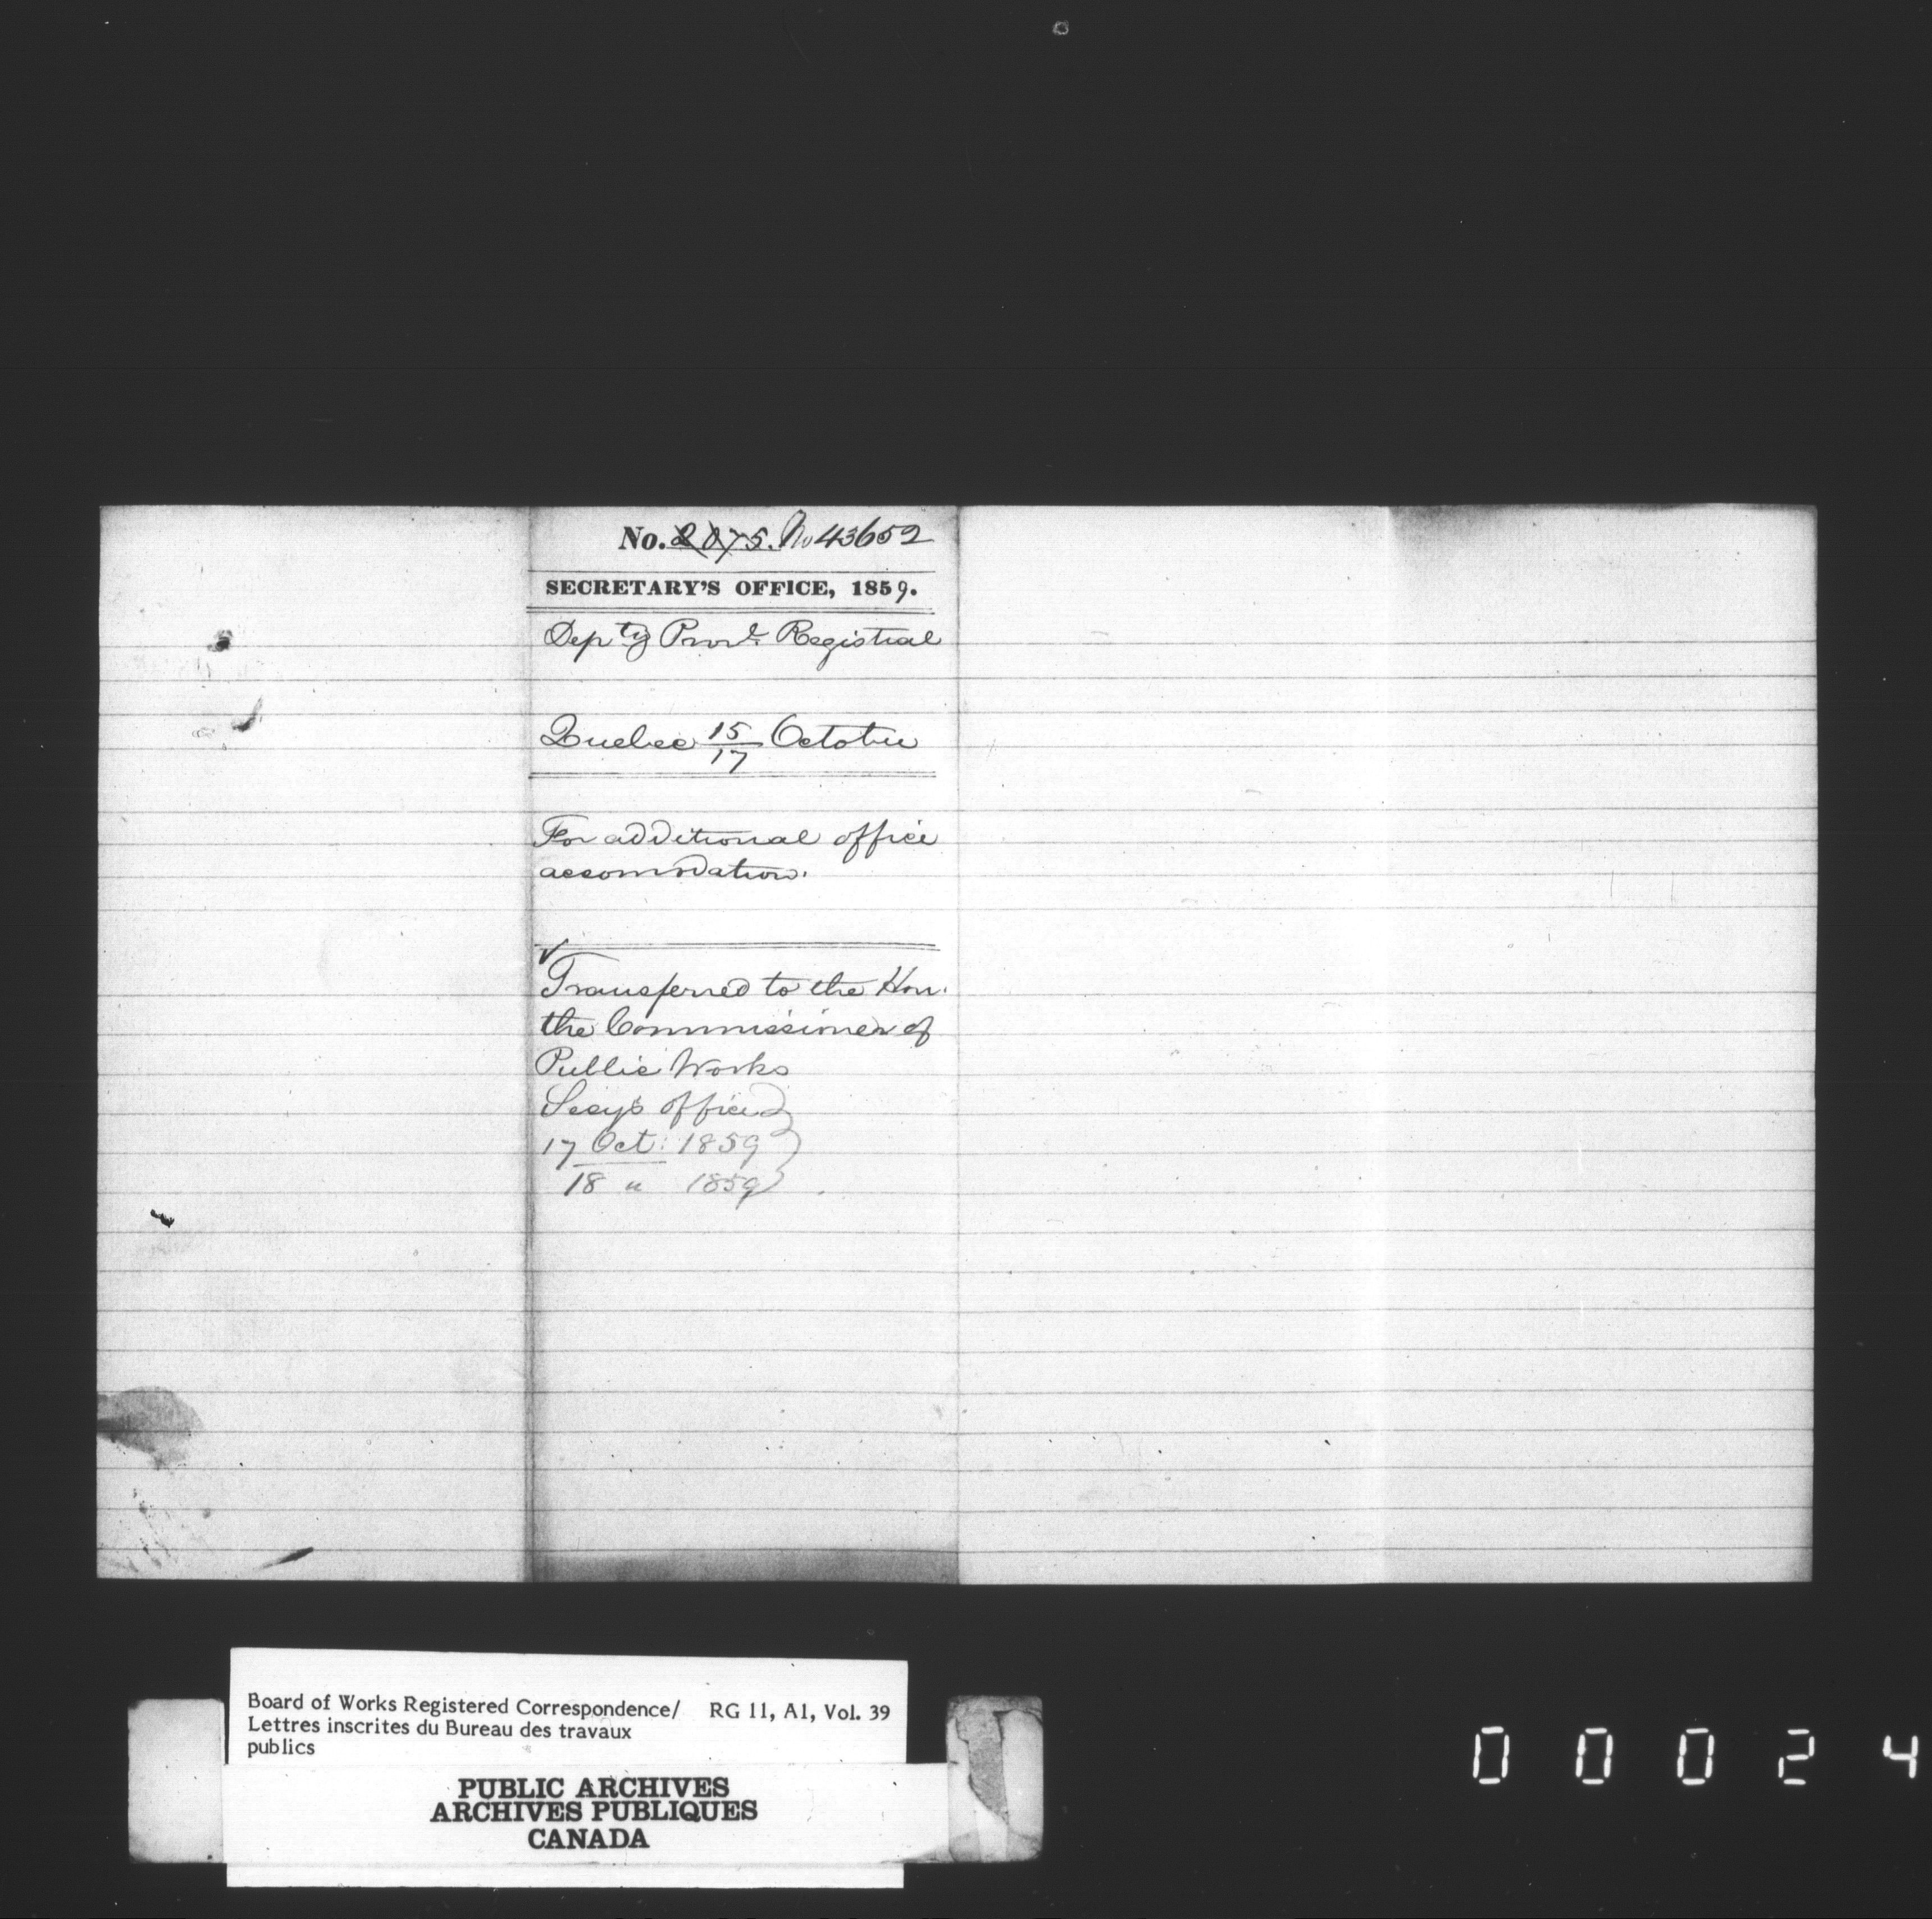 No. 2075. No 43652
SECRETARY'S OFFICE, 1859.
Depty Provl. Registral
Quebec 15/17 October
For additional office
accomodation.
Transferred to the Hon.
the Commissioner of
Public Works
Secy's office
17 Oct: 1859
18 " 1859
Board of Works Registered Correspondence/ RG 11, A1, Vol. 39
Lettres inscrites du Bureau des travaux
publics
PUBLIC ARCHIVES
ARCHIVES PUBLIQUES
CANADA
0 0 0 2 4